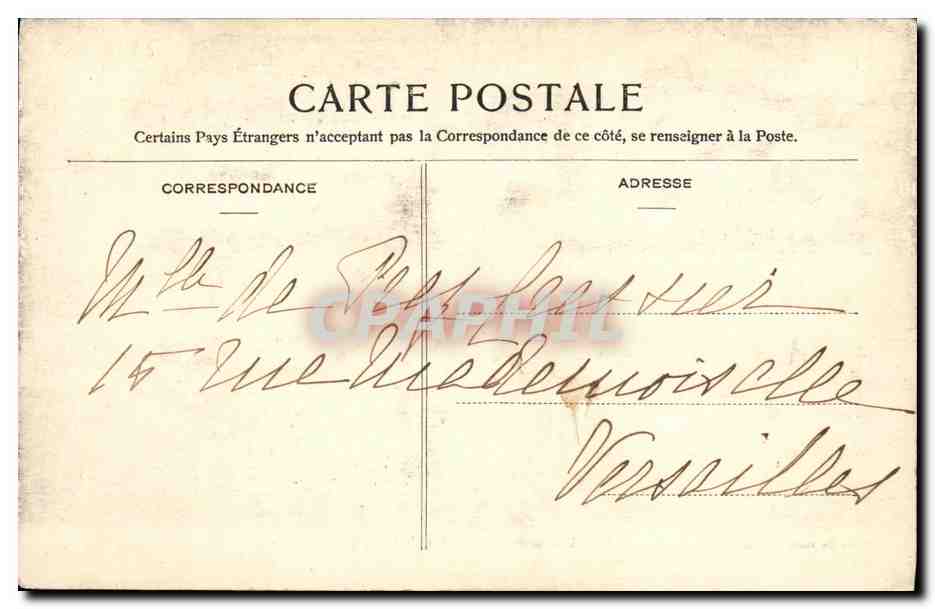 CARTE POSTALE
Certains Pays Étrangers n'acceptant pas la Correspondance de ce côté, se renseigner à la Poste.
CORRESPONDANCE
ADRESSE
Mlle de
CPAPHIL
15 rue Mademoiselle
Versailles